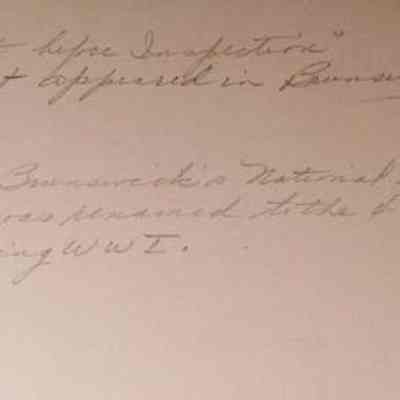 before Inspection"
appeared in Brunsw
Brunswick's National
was renamed to the 6
ing WWI.